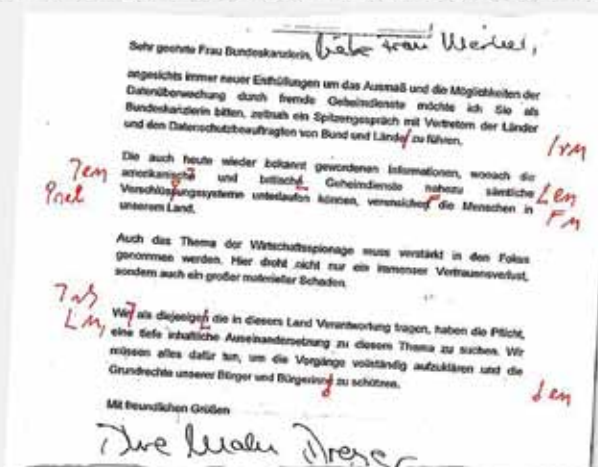 Sehr geehrte Frau Bundeskanzlerin, liebe Frau Merkel,
angesichts immer neuer Enthüllungen um das Ausmaß und die Möglichkeiten der
Datenüberwachung durch fremde Geheimdienste möchte ich Sie als
Bundeskanzlerin bitten, zeitnah ein Spitzengespräch mit Vertretern der Länder
und den Datenschutzbeauftragten von Bund und Länder zu führen. rn
Die auch heute wieder bekannt gewordenen Informationen, wonach die
en amerikanische und britische Geheimdienste nahezu sämtliche en
Verschlüsslungssysteme unterlaufen können, verunsichert die Menschen in n
unserem Land.
Auch das Thema der Wirtschaftsspionage muss verstärkt in den Fokus
genommen werden. Hier droht nicht nur ein immenser Vertrauensverlust,
sondern auch ein großer materieller Schaden.
Wir als diejenigen die in diesem Land Verantwortung tragen, haben die Pflicht,
eine tiefe inhaltliche Auseinandersetzung zu diesem Thema zu suchen. Wir
müssen alles dafür tun, um die Vorgänge vollständig aufzuklären und die
Grundrechte unserer Bürger und Bürgerinne zu schützen. en
Mit freundlichen Grüßen
Ihre Malu Dreyer